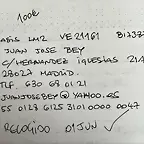 100€
VE21161
JUAN JOSE BEY
C/HERNANDEZ IGLESIAS 21A
28027 MADRID.
TLF. 630 68 01 21
JUANJOSEBEY@YAHOO.ES
55 0128 6125 3101 0000 0047
RECOGIDO 01 JUN ✓